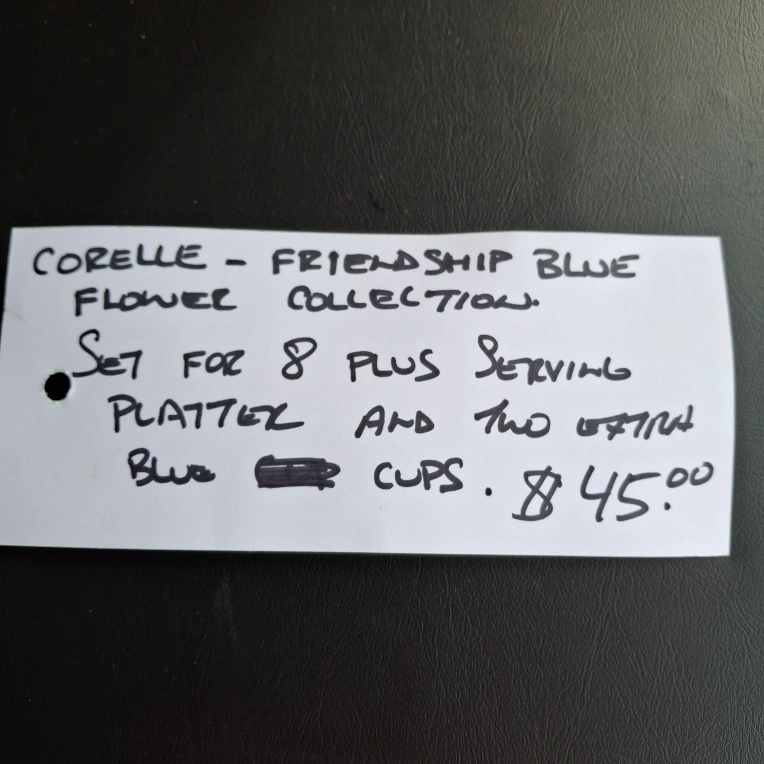 CORELLE - FRIENDSHIP BLUE
FLOWER COLLECTION.
SET FOR 8 PLUS SERVING
PLATTER AND TWO EXTRA
BLUE CUPS. $45.00